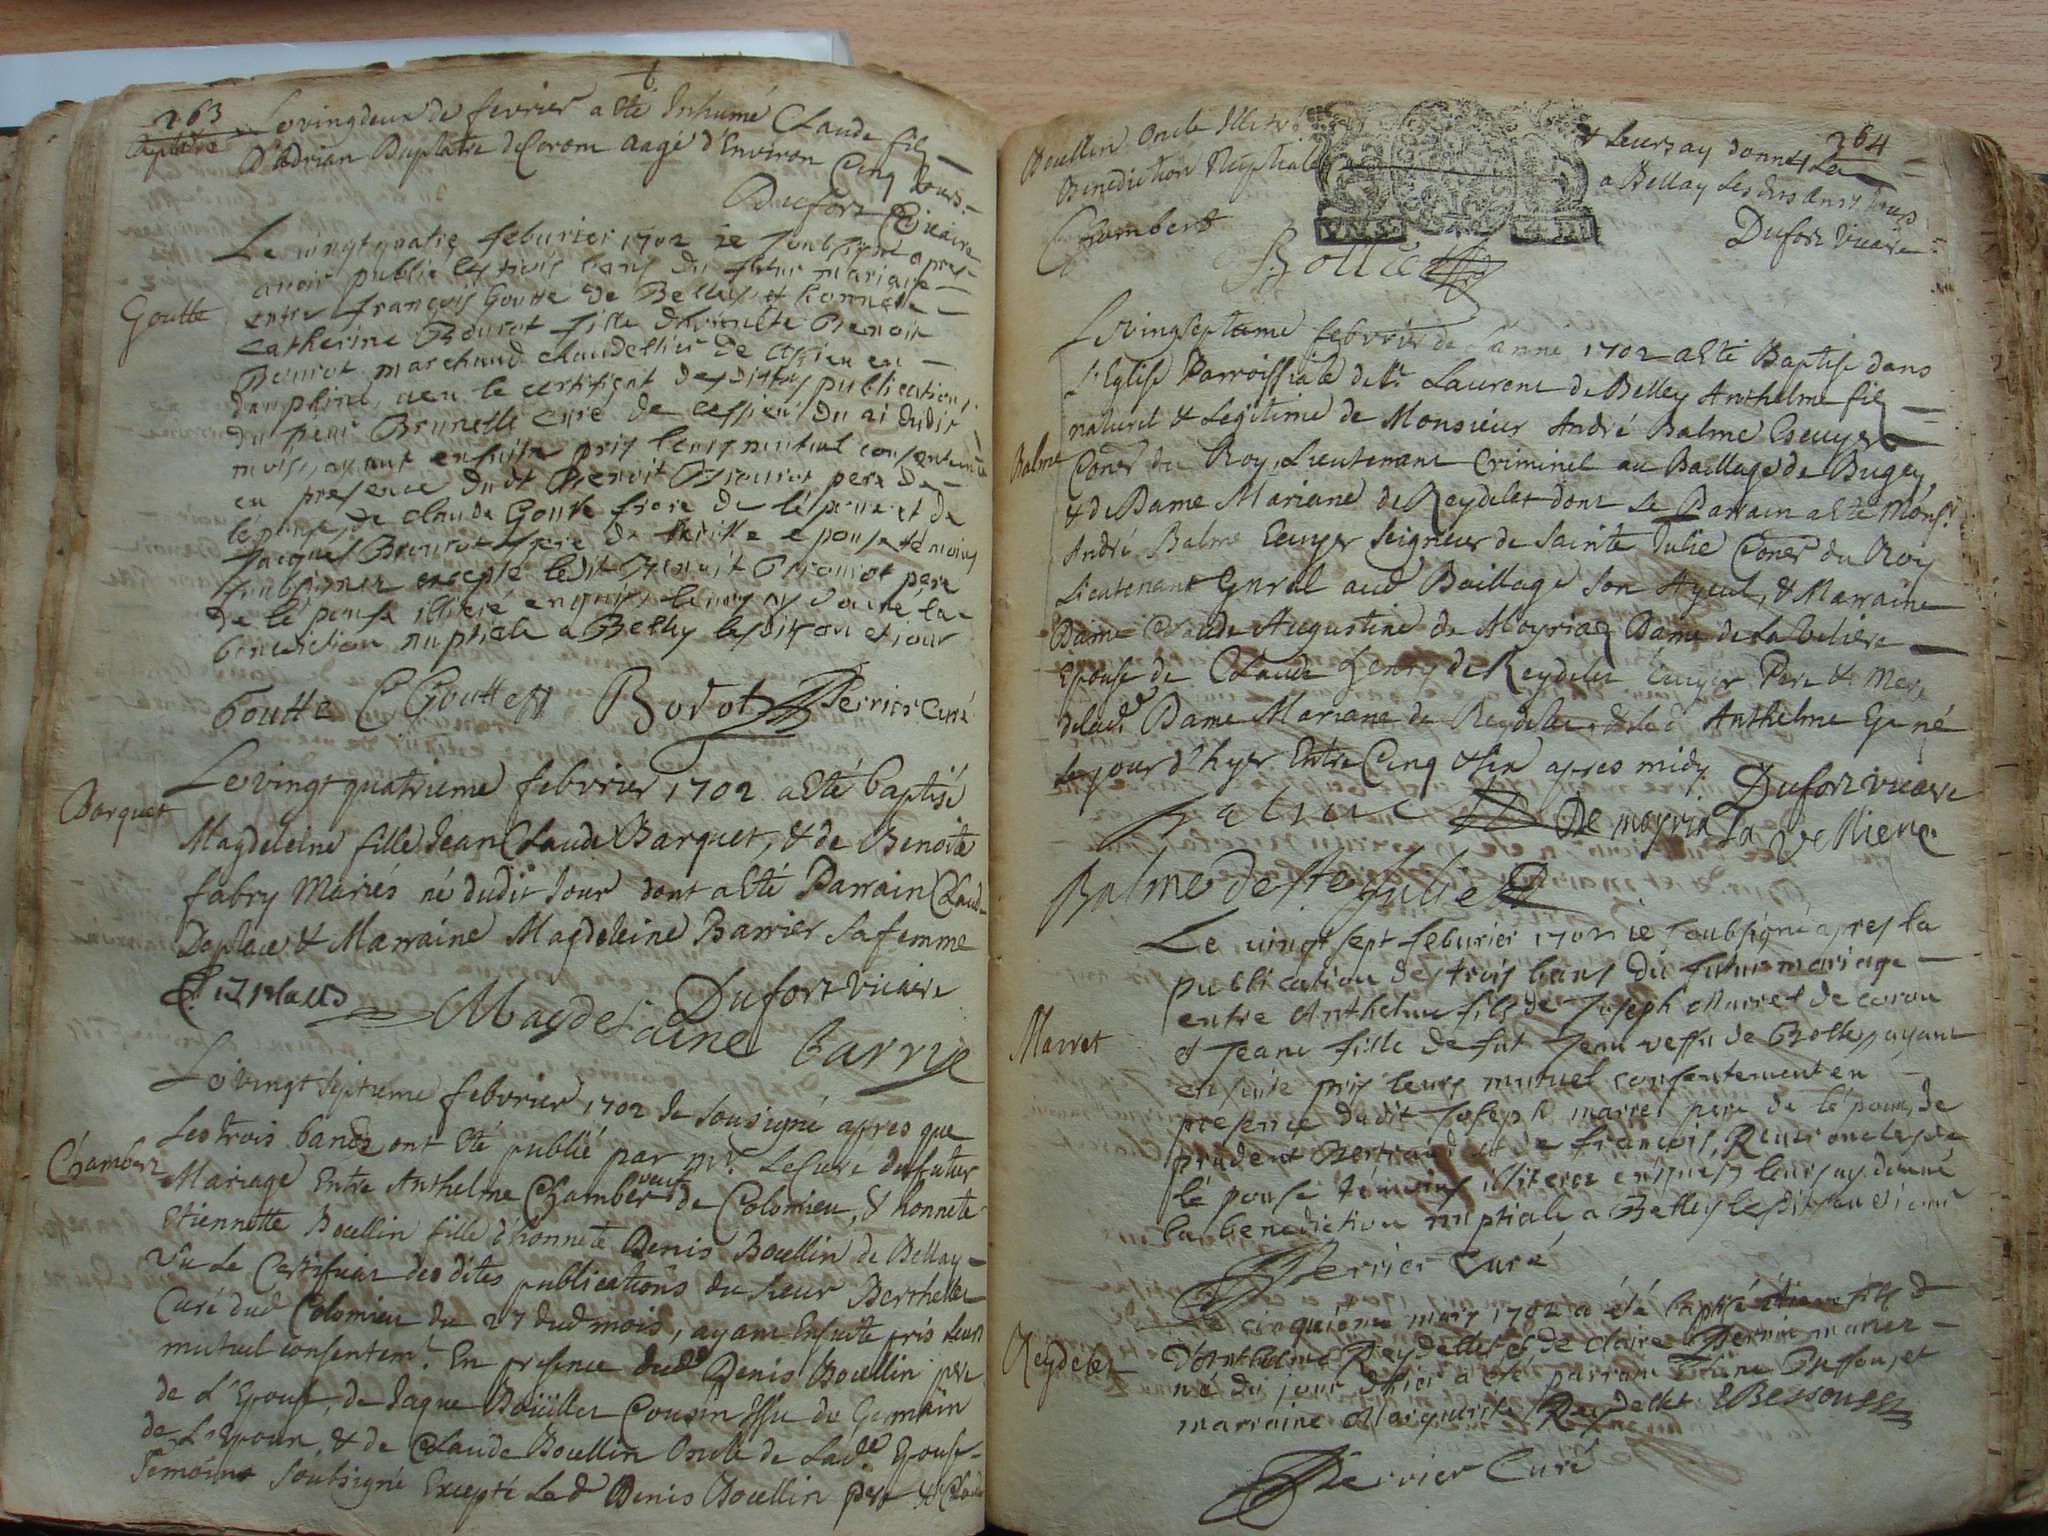 263
Le vingdeux de fevrier a ete Inhumé Claude fils
D'Adrian Duplatre de Coron aagé d'Environ Cinq Jours.
Dufort Vicaire
Le vingt quatre feburier 1702 ie soubsigné apres
avoir publié les trois bans du futur mariage
Goutte
entre françois Goutte de Belley et honnete
Catherine Bourot fille d'honnete Benoit
Bourot marchand chandellier de en
dauphiné, veu le certificat desdittes publications
du sieur Brunelle curé de Cessieu du 21 dudit
mois, ayant ensuite pris leurs mutuel consentement
en presence dudt Benoit Bourot pere de
l'épouse, de claude Goutte frere de l'époux et de
Jacques Bourot frere de l'épouse témoins
soubsignez excepté ledit Benoit Bourot pere
de l'épouse illiteré enquis, leurs ay donné la
benediction nuptiale a Belley lesdits an et jour
Goutte C Goutte Borot Perrier curé
Le vingt quatrieme febvrier 1702 a Eté baptisé
Barquet
Magdeleine fille Jean Claude Barquet, & de Benoite
fabry Mariés né dudit Jour dont a Eté Parrain Claud
Duplace & Marraine Magdeleine Barrier Sa femme
Dufort Vicaire
Magdelaine barrye
Le vingt septieme febvrier 1702 Je Sousigné apres que
Les trois bands ont Eté publié par Mr. Le Curé du futur
Chamber
Mariage Entre Anthelme Chamber veuf de Colomieu, & honnete
Etiennette Boullin fille d'honnete Denis Boullin de Bellay
Vu Le Certificat des dites publications du Sieur Berthelet
Curé dud Colomieu du 27 dud mois, ayam Ensuite pris leurs
mutuel consentemt. En presence dud Denis Boullin pere
de L'Epouse, de Jaque Boüillet Cousin Issu de Germain
de L'Epoux, & de Claude Boullin Oncle de Lade. Epouse
Temoins Soubsigné Excepté Led Denis Boullin pere & Claude
264
Boullin Oncle Illiteré & Leurs ay donné La
Benediction Nuptiale a Bellay Les dits an & Jours
Chambert Dufort Vicaire
Le vingseptieme febvrier de l'anné 1702 a Eté Baptisé dans
l'Eglise Parroissiale de St. Laurent de Belley Anthelme fils
naturel & Legitime de Monsieur André Balme Escuyer
Balme
Coner du Roy, Lieutenant Criminel au Baillage de Bugey,
& de Dame Mariane de Reydelet dont Le Parrain a Eté Monsr.
André Balme Ecuyer Seigneur de Sainte Julie Coner du Roy
Lieutenant Gnral aud Baillage Son Ayeul, & Marraine
Dame Claude Augustine de Moyria Dame de La Veliere
Epouse de Claude Henry de Reydelet Ecuyer Pere & Mere
de lad. Dame Mariane de Reydelet & led Anthelme Est né
Le jour d'hyer Entre Cinq & Six apres midy
Dufort vicaire
Balme De moyria La Velliere
Balme de Ste Julie
Le vingt sept feburier 1702 ie soubsigné apres la
publication des trois bans du futur mariage
entre Anthelme fils de Joseph Marret de coron
Marret
et Jeane fille de fut Jean de ayant
ensuite pris leurs mutuel consentement en
presence dudit Joseph marret pere de l'époux, de
prudent Bertrand et de francois oncles de
l'épouse témoins illiterez enquis leurs ay donné
la benediction nuptiale a Belley lesdits an et jour
Perrier Curé
Le cinquiéme mars 1702 a été baptisé étiene fils d
Reydelet
d'Anthelme Reydellet et de claire Pernin mariez
né du jour d'hier a été parrain étiene Bessou, et
marraine Marguerite Reydellet
Perrier Curé